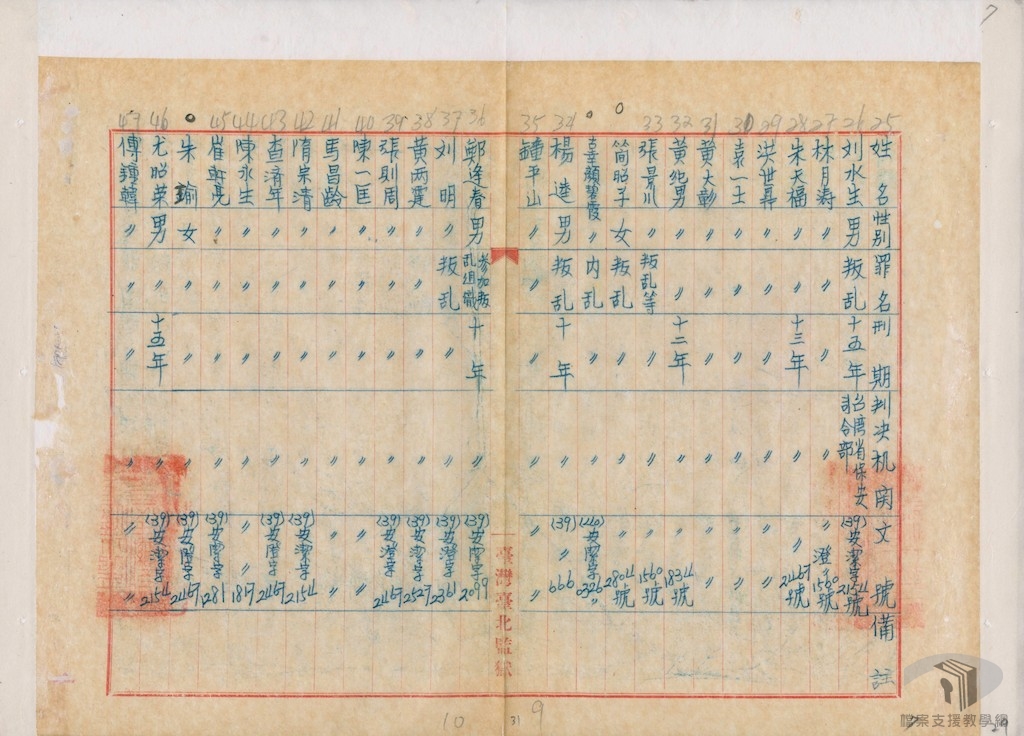 7
25 26 27 28 29 30 31 32 33 34 35
姓名 性別 罪名 刑期 判决机関 文號 備註
刘水生 男 叛乱 十五年 台湾省保安司令部 (39)安潔字2154號
林月涛 〃 〃 〃 〃 〃澄〃1560號
朱天福 〃 〃 十三年 〃 〃〃2467號
洪世鼎 〃 〃 〃 〃 〃
袁一士 〃 〃 〃 〃 〃
黄大彰 〃 〃 〃 〃 〃
黄 男 〃 〃 十二年 〃 〃1834號
張 〃 叛乱等 〃 〃 〃1560號
简昭子 女 叛乱 〃 〃 〃2804號
辜顏碧霞 〃 内乱 〃 〃 (40)安潔字0326〃
楊逵 男 叛乱 十年 〃 (39)〃〃666
鐘平山 〃 〃 〃 〃 〃〃
臺灣臺北監獄
36 37 38 39 40 41 42 43 44 45 46 47
鄭逢春 男 参加叛乱组織 十年 〃 (39)安潔字2099
刘明 〃 叛乱 〃 〃 (39)安澄字2361
黄两霆 〃 〃 〃 〃 (39)安潔字2527
張則周 〃 〃 〃 〃 (39)安澄字2467
陳一匡 〃 〃 〃 〃 〃〃
馬昌龄 〃 〃 〃 〃 〃〃
隋宗清 〃 〃 〃 〃 (39)安潔字2154
查济年 〃 〃 〃 〃 (39)安澄字2467
陳水生 〃 〃 〃 〃 〃〃1817
崔乾亮 〃 〃 〃 〃 (39)安潔字1281
朱瑜 女 〃 〃 〃 (39)安澄字2467
尤昭荣 男 〃 十五年 〃 (39)安潔字2154
傅鍾 〃 〃 〃 〃 〃〃
10
31
9
29
檔案支援教學網